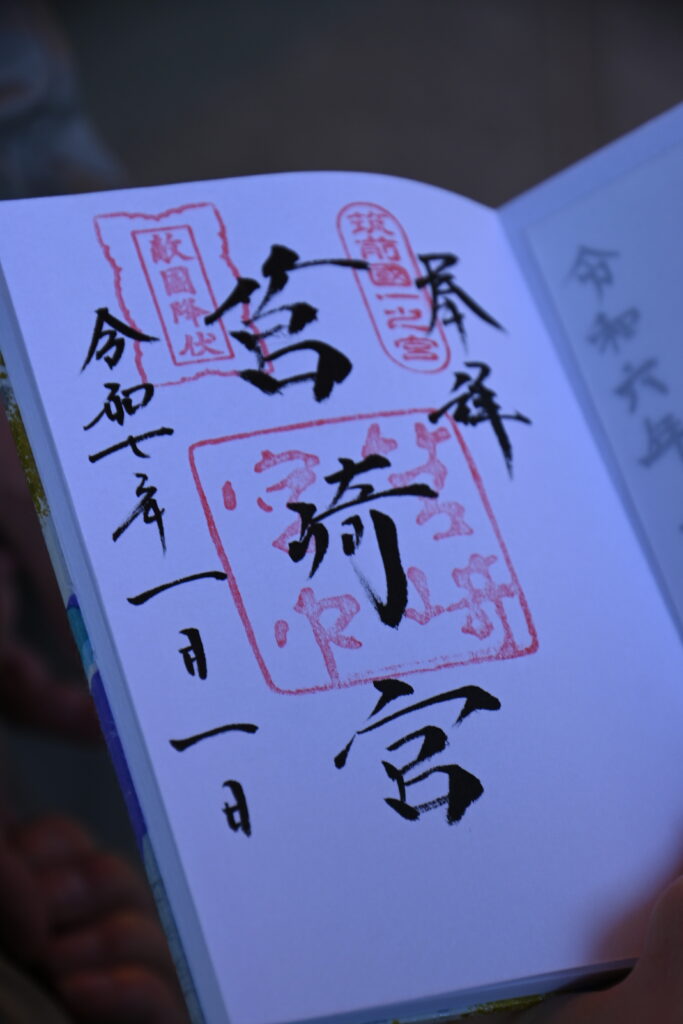 令和六年
奉拝
筑前國一之宮
筥崎宮
筥崎
宮印
敵國降伏
令和七年一月一日